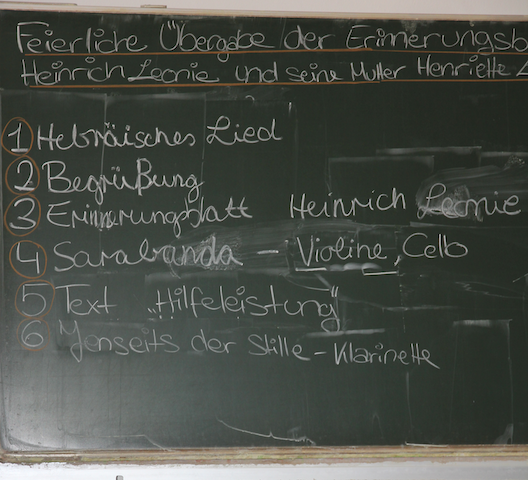 Feierliche Übergabe der Erinnerungsb
Heinrich Leonie und seine Mutter Henriette L
1 Hebräisches Lied
2 Begrüßung
3 Erinnerungsblatt Heinrich Leonie
4 Sarabanda - Violine, Cello
5 Text „Hilfeleistung"
6 Jenseits der Stille - Klarinette